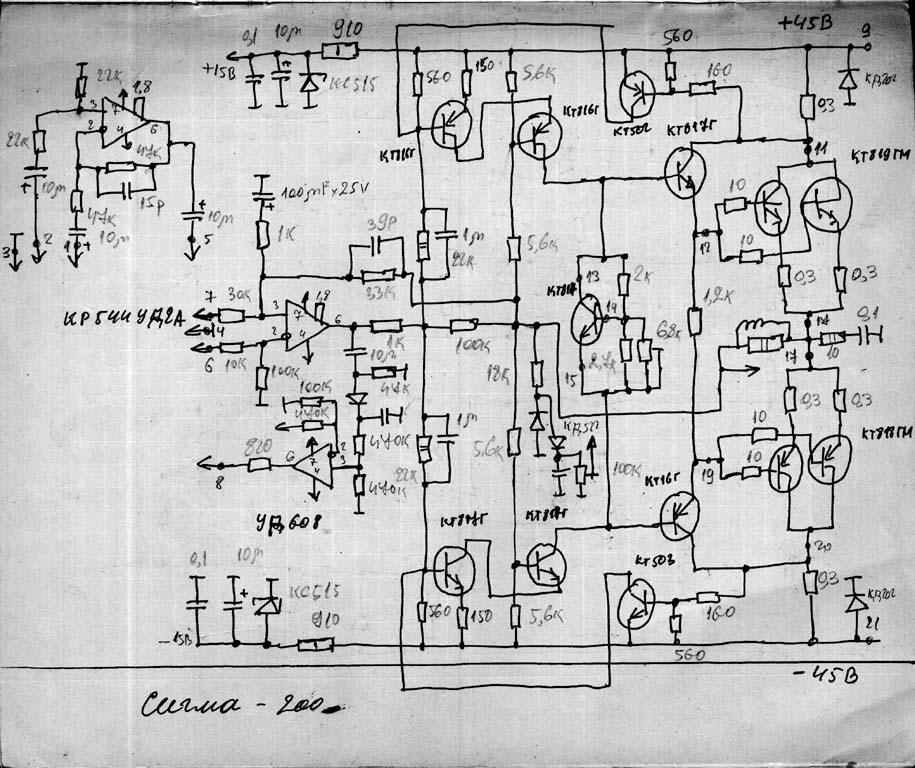 +45В
9
0,1
10µ
910
+15В
КС515
560
150
5,6к
560
160
КТ502
КД202
0,3
22к
1,8
3
7
2
4
6
22к
47к
15р
10µ
47к
10µ
10µ
3
2
1
5
КТ816Г
КТ816Г
КТ817Г
11
КТ819ГМ
100µF x 25V
1к
39р
33к
1µ
22к
5,6к
10
12
10
0,3
0,3
13
2к
КТ817
14
6,8к
2,7к
15
1,2к
7
30к
КР544УД2А
14
6
10к
3
7
1,8
2
4
6
1к
100к
100к
10µ
47к
17
17
10
0,1
18к
КД522
100к
100к
470к
470к
470к
1µ
22к
5,6к
0,3
0,3
10
10
КТ818ГМ
19
8
820
6
7
4
2
3
УД608
КТ817Г
КТ816Г
КТ503
20
0,3
0,1
10µ
КС515
910
-15В
560
150
5,6к
160
560
КД202
21
-45В
Сигма - 200